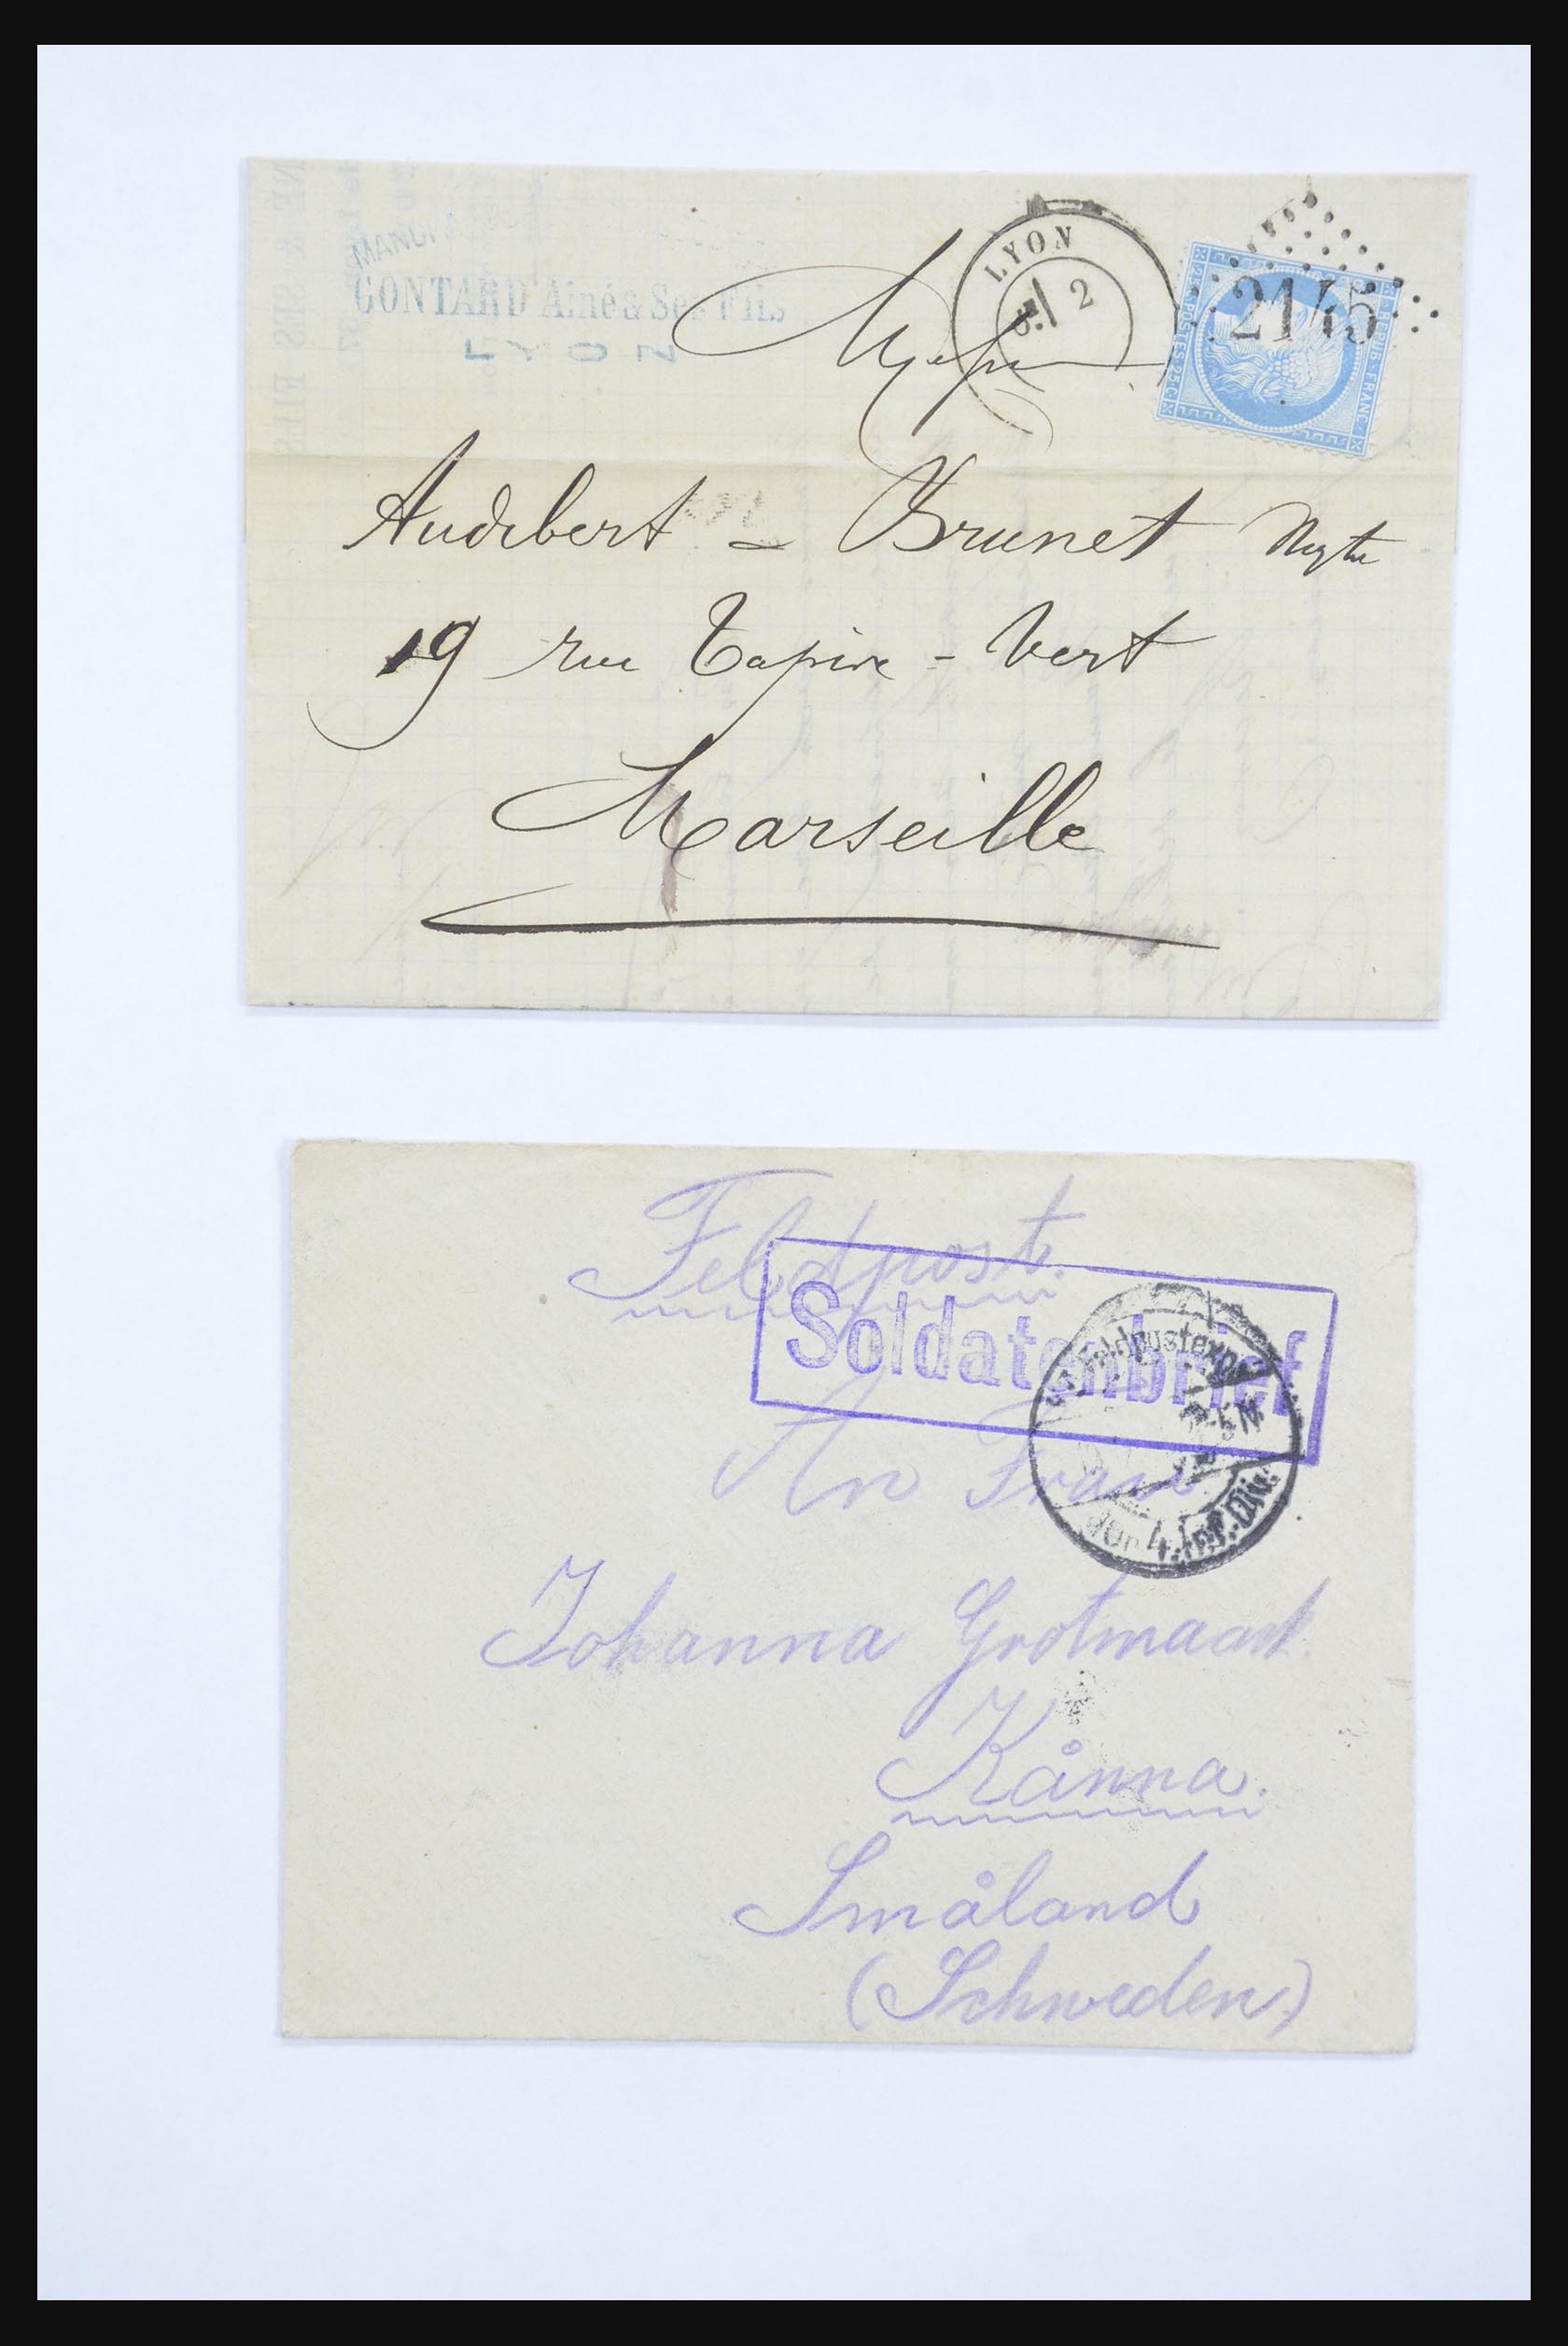 GONTARD Ainé & Ses Fils
LYON
LYON
2
2145
REPUB. FRANC.
POSTES
Audibert - Brunet
19 rue Tapis - Vert
Marseille
Feldpost.
Soldatenbrief
Feldpostexp.
der 4. Inf. Div.
An Frau
Johanna
Kånna.
Småland
(Schweden)